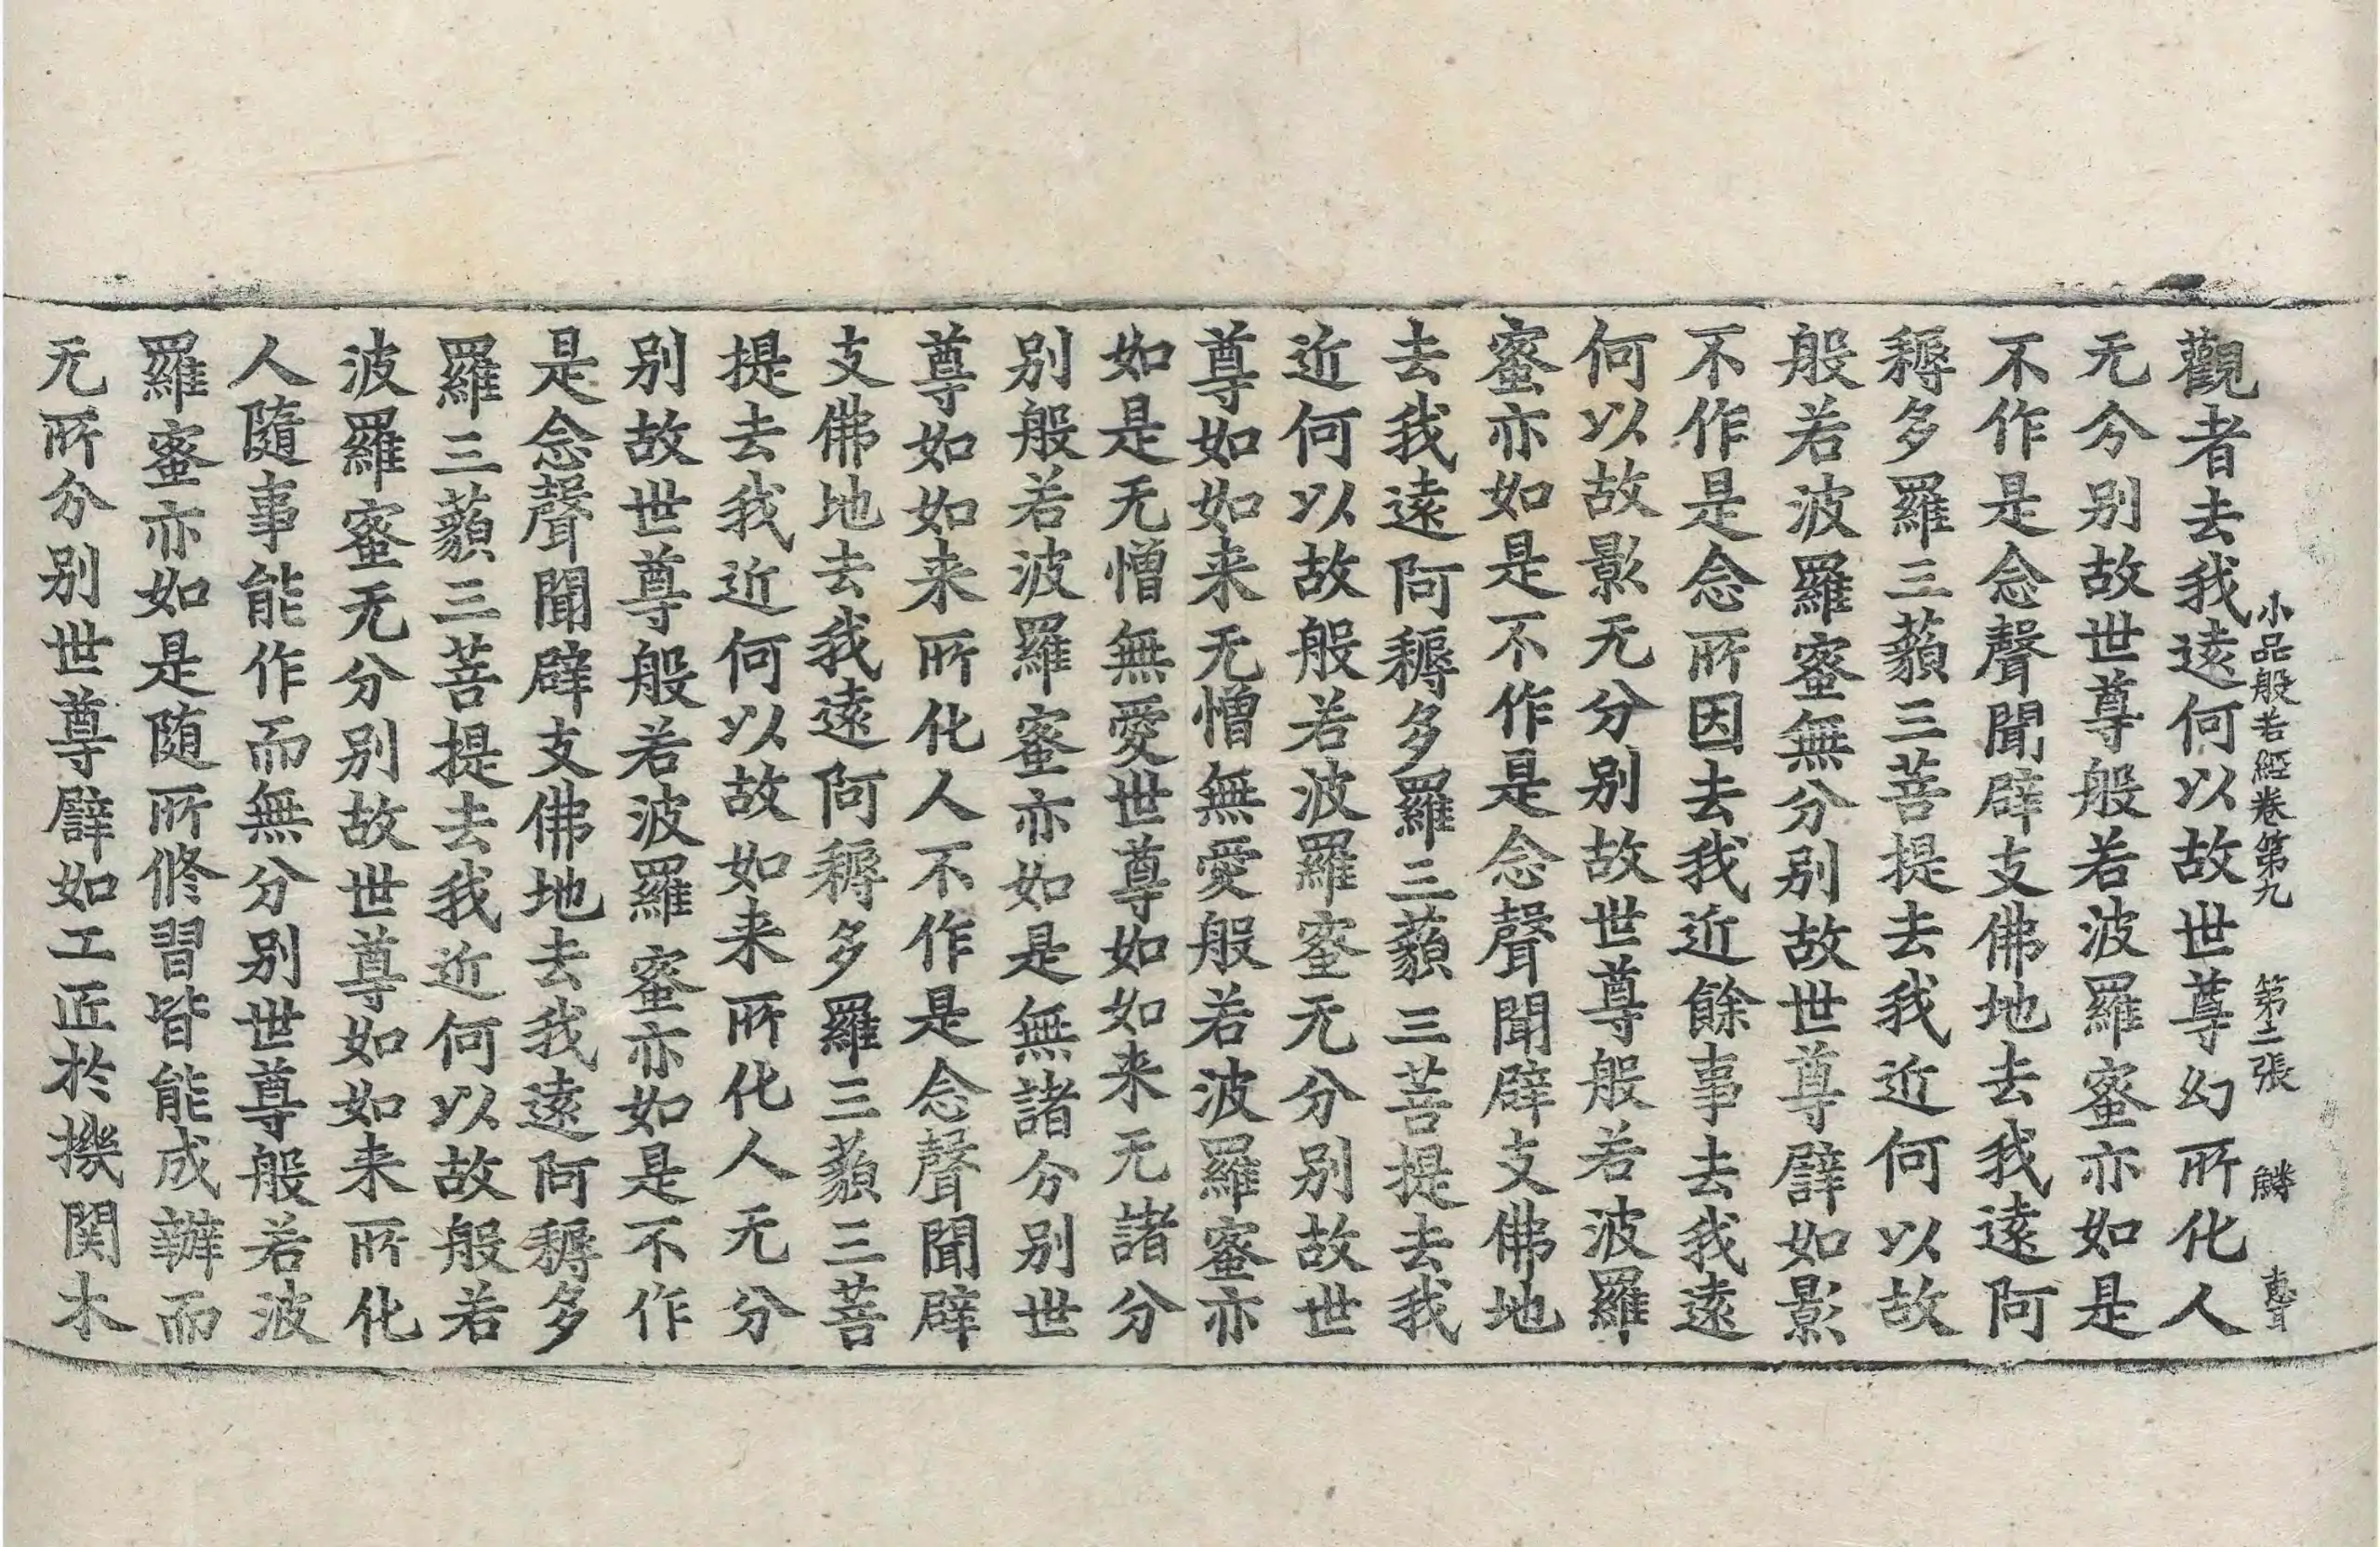 小品般若經卷第九 第二張 鱗
觀者去我遠何以故世尊幻所化人
无分别故世尊般若波羅蜜亦如是
不作是念聲聞辟支佛地去我遠阿
耨多羅三藐三菩提去我近何以故
般若波羅蜜無分别故世尊譬如影
不作是念所因去我近餘事去我遠
何以故影无分别故世尊般若波羅
蜜亦如是不作是念聲聞辟支佛地
去我遠阿耨多羅三藐三菩提去我
近何以故般若波羅蜜无分别故世
尊如如来无憎無愛般若波羅蜜亦
如是无憎無愛世尊如如来无諸分
别般若波羅蜜亦如是無諸分别世
尊如如来所化人不作是念聲聞辟
支佛地去我遠阿耨多羅三藐三菩
提去我近何以故如来所化人无分
别故世尊般若波羅蜜亦如是不作
是念聲聞辟支佛地去我遠阿耨多
羅三藐三菩提去我近何以故般若
波羅蜜无分别故世尊如如来所化
人隨事能作而無分别世尊般若波
羅蜜亦如是随所修習皆能成辦而
无所分别世尊譬如工匠於機関木